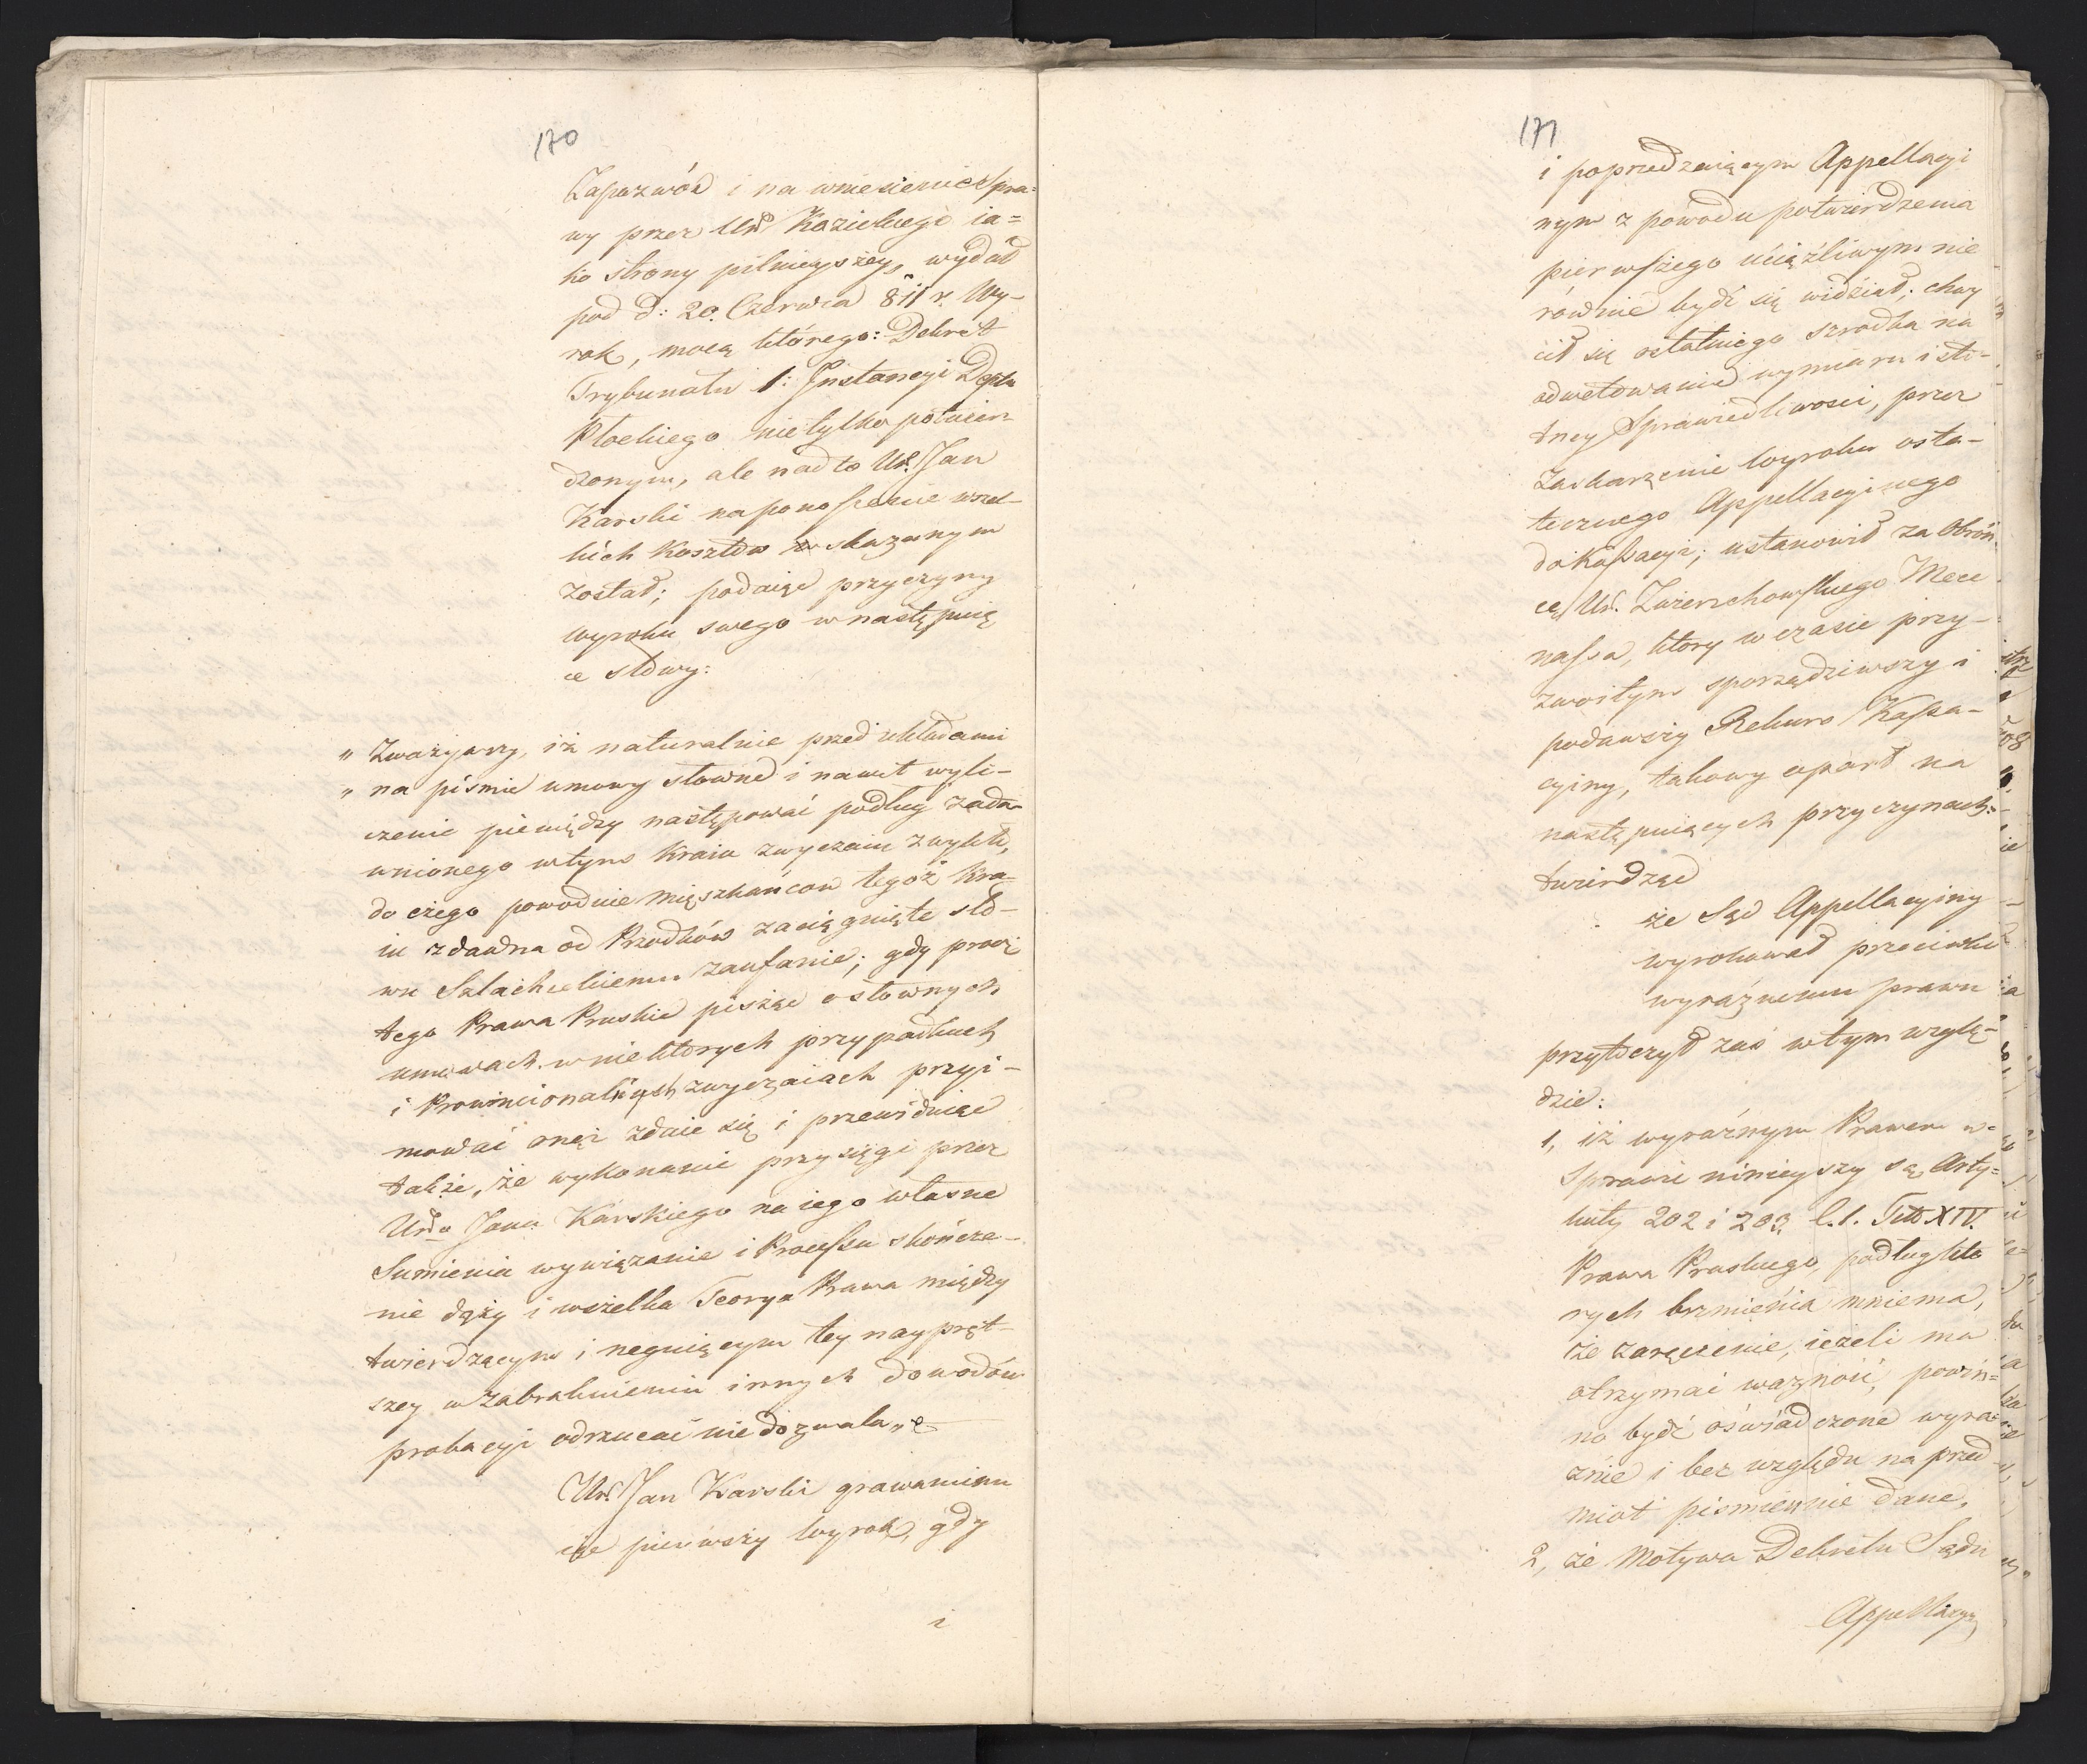 170
Zapozwów i na wniesienie Spra=
wy przez Ur̃ Kozickiego ia=
ko strony pilnieyszey, wydał
pod d: 20. Czerwca 811 r. Wy-
rok, mocą którego: Dekret
Trybunału 1: Instancyi Deptu
Płockiego nietylko potwier
dzonym, ale nadto Ur. Jan
Karski na ponoszenie wszel-
kich Kosztów skazanym
został; podaiąc przyczyny
wyroku swego w następuią
ce słowy:
„ Zważywszy, iż naturalnie przed układami
„ na piśmie umowy słowne i nawet wyli-
czenie pieniędzy następować podług zada-
wnionego w tym Kraiu zwyczaiu zwykło,
do czego powodnie Mięszkańcow tegoż Kra-
iu zdawna od Przodków zaciągnięte sło-
wu Szlacheckiemu zaufanie; gdy prócz
tego Prawa Pruskie pisząc o słownych
umowach w niektorych przypadkach
i Prowincionalnych zwyczaiach przyi-
mować oneż zdaie się i przewiduiąc
także, że wykonanie przysięgi przez
Urõ Jana Karskiego na iego własne
Sumienia wywiązanie i Processu skończe-
nie dąży i wszelka Teorya Prawa między
twierdzącym i neguiącym tey naypręt-
szey w zabraknieniu innych dowodów
probacyi odrzucać nie dozwala „
Ur. Jan Karski grawaminu
iąc pierwszy Wyrok, gdy
i
171
i poprzedzaiącym Appellacyi
nym z powodu potwierdzenia
pierwszego uciążliwym nie
rownie bydź się widział; chwy
cił się ostatniego szrodka na
odwetowanie wymiaru isto-
tney Sprawiedliwosci, przez
Zaskarzenie Wyroku osta-
tecznego Appellacyinego
do Kassacyi; ustanowił za Obroń
cę Ur. Zwierzchowskiego Mece
nassa, ktory w czasie przy-
zwoitym sporządziwszy i
podawszy Rekurs Kassa-
cyiny, takowy oparł na
następuiących przyczynach:
twierdząc
że Sąd Appellacyiny
wyrokował przeciwko
wyraźnemu prawu
przytoczył zaś w tym wzglę-
dzie:
1, iż wyraźnym Prawem w-
Sprawie ninieyszy są Arty=
kuły 202 i 203 C.1. Titt XIV.
Prawa Pruskiego, podług któ
rych brzmienia mniema,
że zaręczenie, ieżeli ma
otrzymać ważność, powin=
no bydź oświadczone wyra=
źnie i bez względu na przed
miot pismiennie dane,
2, że Motywa Dekretu Sądu
Appellacyi